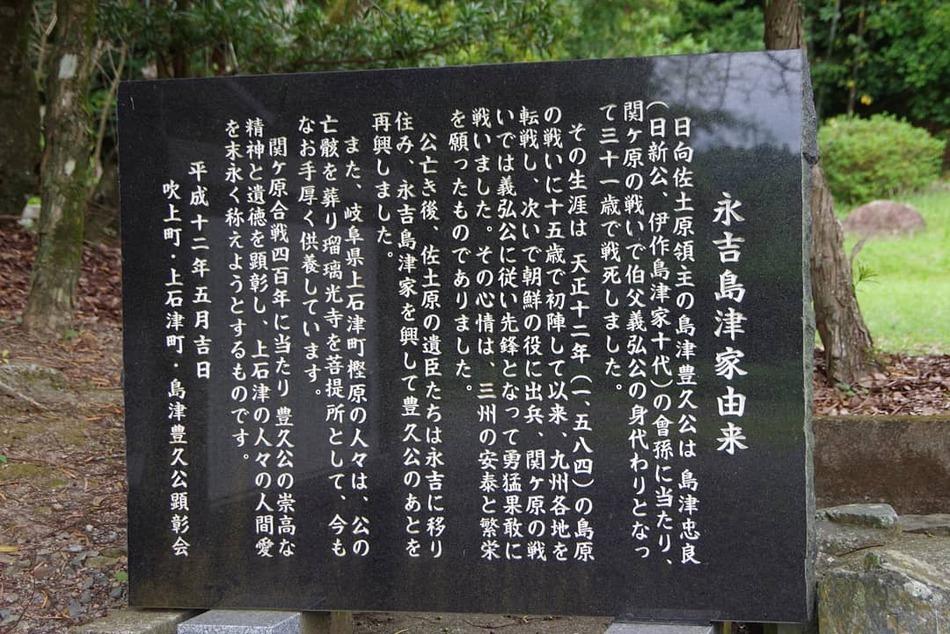 永吉島津家由来
日向佐土原領主の島津豊久公は 島津忠良
(日新公、伊作島津家十代)の會孫に当たり、
関ヶ原の戦いで伯父義弘公の身代わりとなっ
て三十一歳で戦死しました。
その生涯は 天正十二年(一、五八四)の島原
の戦いに十五歳で初陣して以来、九州各地を
転戦し、次いで朝鮮の役に出兵、関ヶ原の戦
いでは義弘公に従い先鋒となって勇猛果敢に
戦いました。その心情は、三州の安泰と繁栄
を願ったものでありました。
公亡き後、佐土原の遺臣たちは永吉に移り
住み、永吉島津家を興して豊久公のあとを
再興しました。
また、岐阜県上石津町樫原の人々は、公の
亡骸を葬り瑠璃光寺を菩提所として、今も
なお手厚く供養しています。
関ヶ原合戦四百年に当たり 豊久公の崇高な
精神と遺徳を顕彰し、上石津の人々の人間愛
を末永く称えようとするものです。
平成十二年五月吉日
吹上町・上石津町・島津豊久公顕彰会